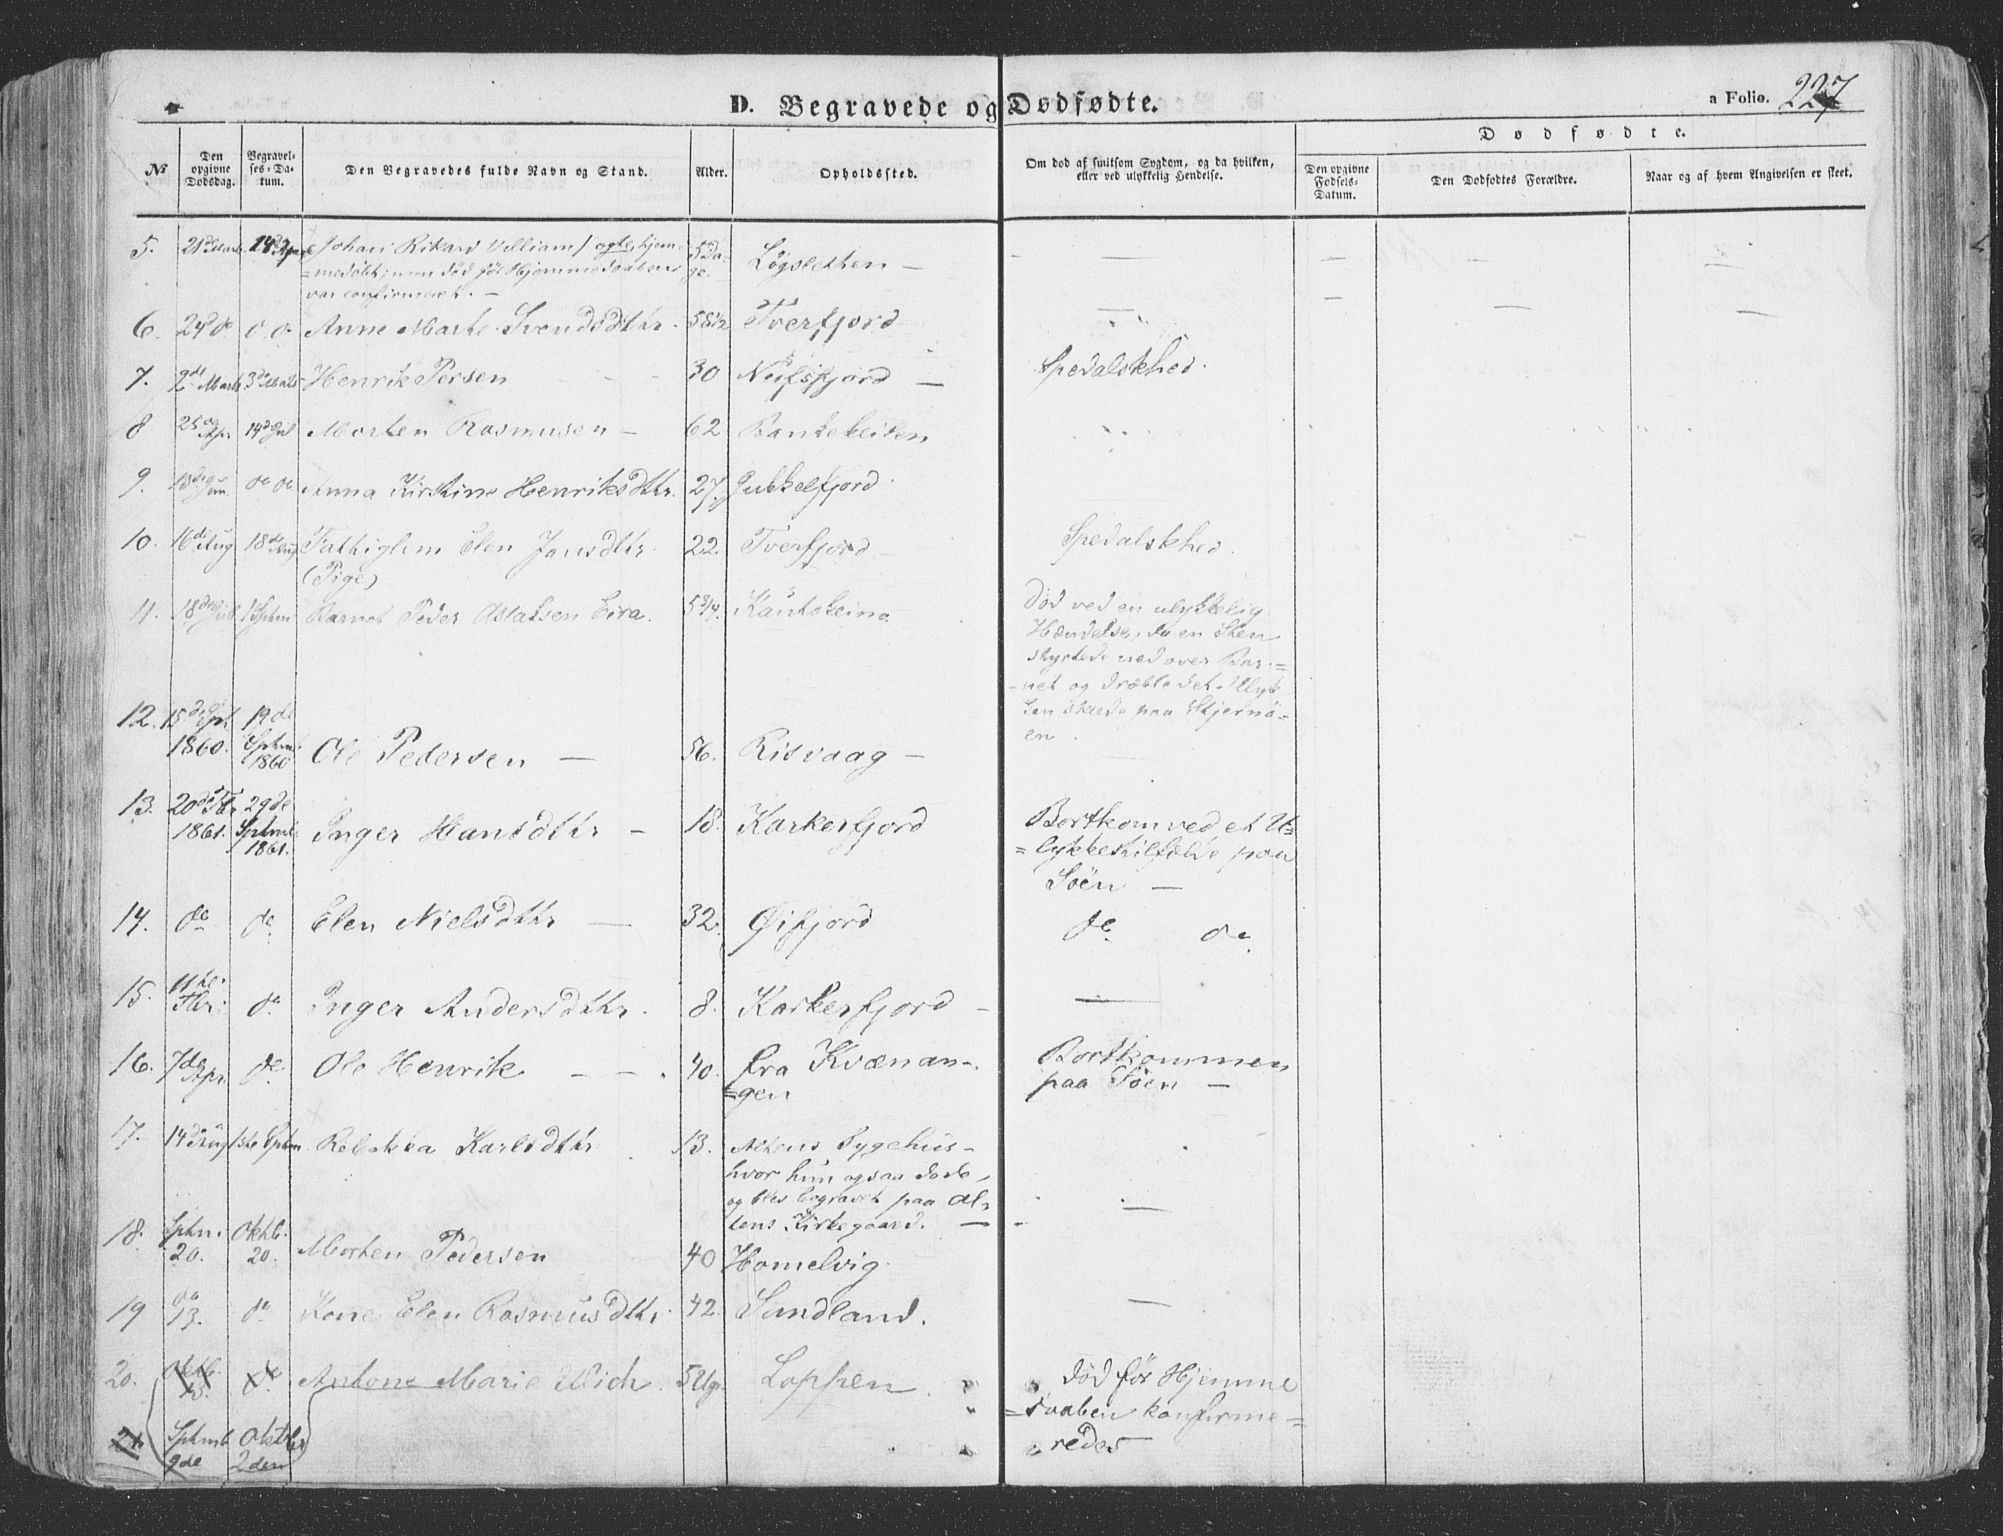 D. Begravede og Dødfødte.
a Folio. 227
Dødfødte.
№
Den opgivne Dødsdag.
Begravelses-Datum.
Den Begravedes fulde Navn og Stand.
Alder.
Opholdssted.
Om død af smitsom Sygdom, og da hvilken,
eller ved ulykkelig Hendelse.
Den opgivne Fødsels-Datum.
Den Dødfødtes Forældre.
Naar og af hvem Angivelsen er skeet.
5. 21de 14de Johan Rikard Villiam, ægte, hjem= 5 Da- Løgsletten —
=medøbt; men død før Hjemmedaaben ge.
var confirmeret. —
6. 24 de do do Anne Marte Svendsdttr. 58½ Tverfjord —
7. 2de Marts 3de Henrik Persen 30 Nufsfjord — Spedalskhed.
8 25de Apr 14de Jul Morten Rasmusen — 62
9. 13de Jun. do do Anna Kirstine Henriksdttr. 27. Jukkelfjord
10. 16de Aug 18de Aug Elen Jansdttr. 22. Tverfjord — Spedalskhed.
(Pige)
11. 18de Jul 1 Septm Barnet Peder Aslaksen Eira. 5¾. Kautokeino. Død ved en ulykkelig
Hændelse, da en Sten
styrtede ned over Bar=
=net og dræbte det. Ulyk
ken skede paa Stjernø=
en.
12. 15de Spt. 1860. 19de Septm. 1860 Ole Pedersen — 56. Risvaag —
13. 20de Fbr 1861. 29de Septm. 1861. Inger Hansdttr — 18. Karkerfjord Bortkom ved et U=
=lykkestilfælde paa
Søen —
14. do do Elen Nielsdttr — 32. Øifjord do do
15. 11te Fbr: do Inger Andersdttr. 8. Karkerfjord — —
16. 7de Apr. do Ole Henrik — — . 40. fra Kvænan= Bortkommen
=gen paa Søen —
17. 14de Aug 1ste Septm Rebekka Karlsdttr 13. Altens Sygehus—
hvor hun ogsaa døde,
og blev begravet paa Al=
tens Kirkegaard. —
18. Sptm. 20. Oktb. 20. Morten Pedersen 40 Homelvig.
19 do 13. do Kone Elen Rasmusdttr. 42. Sandland. —
20. Oktb. 13. do Antone Marie Wich. 5 Ugr Loppen. Død før Hjemme
=daaben konfirme=
redes
21. Sptmb 9de Oktbr 2den